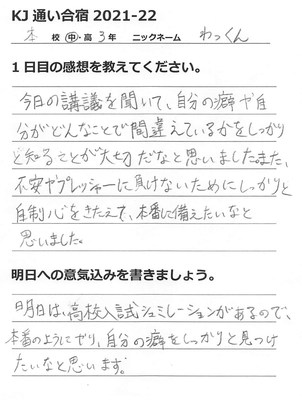 KJ 通い合宿 2021-22
本 校 中・高 3年 ニックネーム わっくん
1日目の感想を教えてください。
今日の講議を聞いて、自分の癖や自
分がどんなことで間違えているかをしっかり
と知ることが大切だなと思いましたまた、
不安やプレッシャーに負けないためにしっかりと
自制心をきたえて、本番に備えたいなと
思いました。
明日への意気込みを書きましょう。
明日は、高校入試シュミレーションがあるので、
本番のようにやり、自分の癖をしっかりと見つけ
たいなと思います。